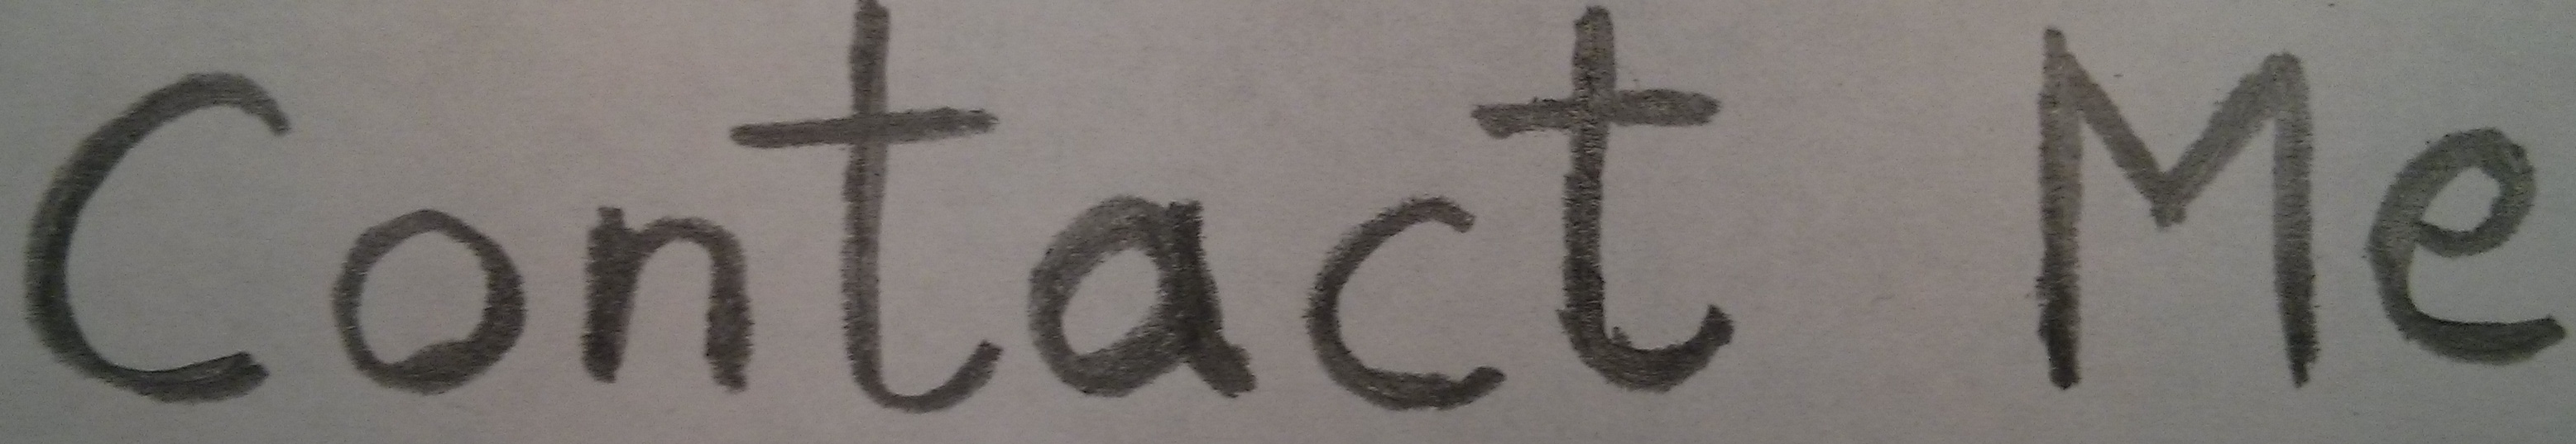 Contact Me